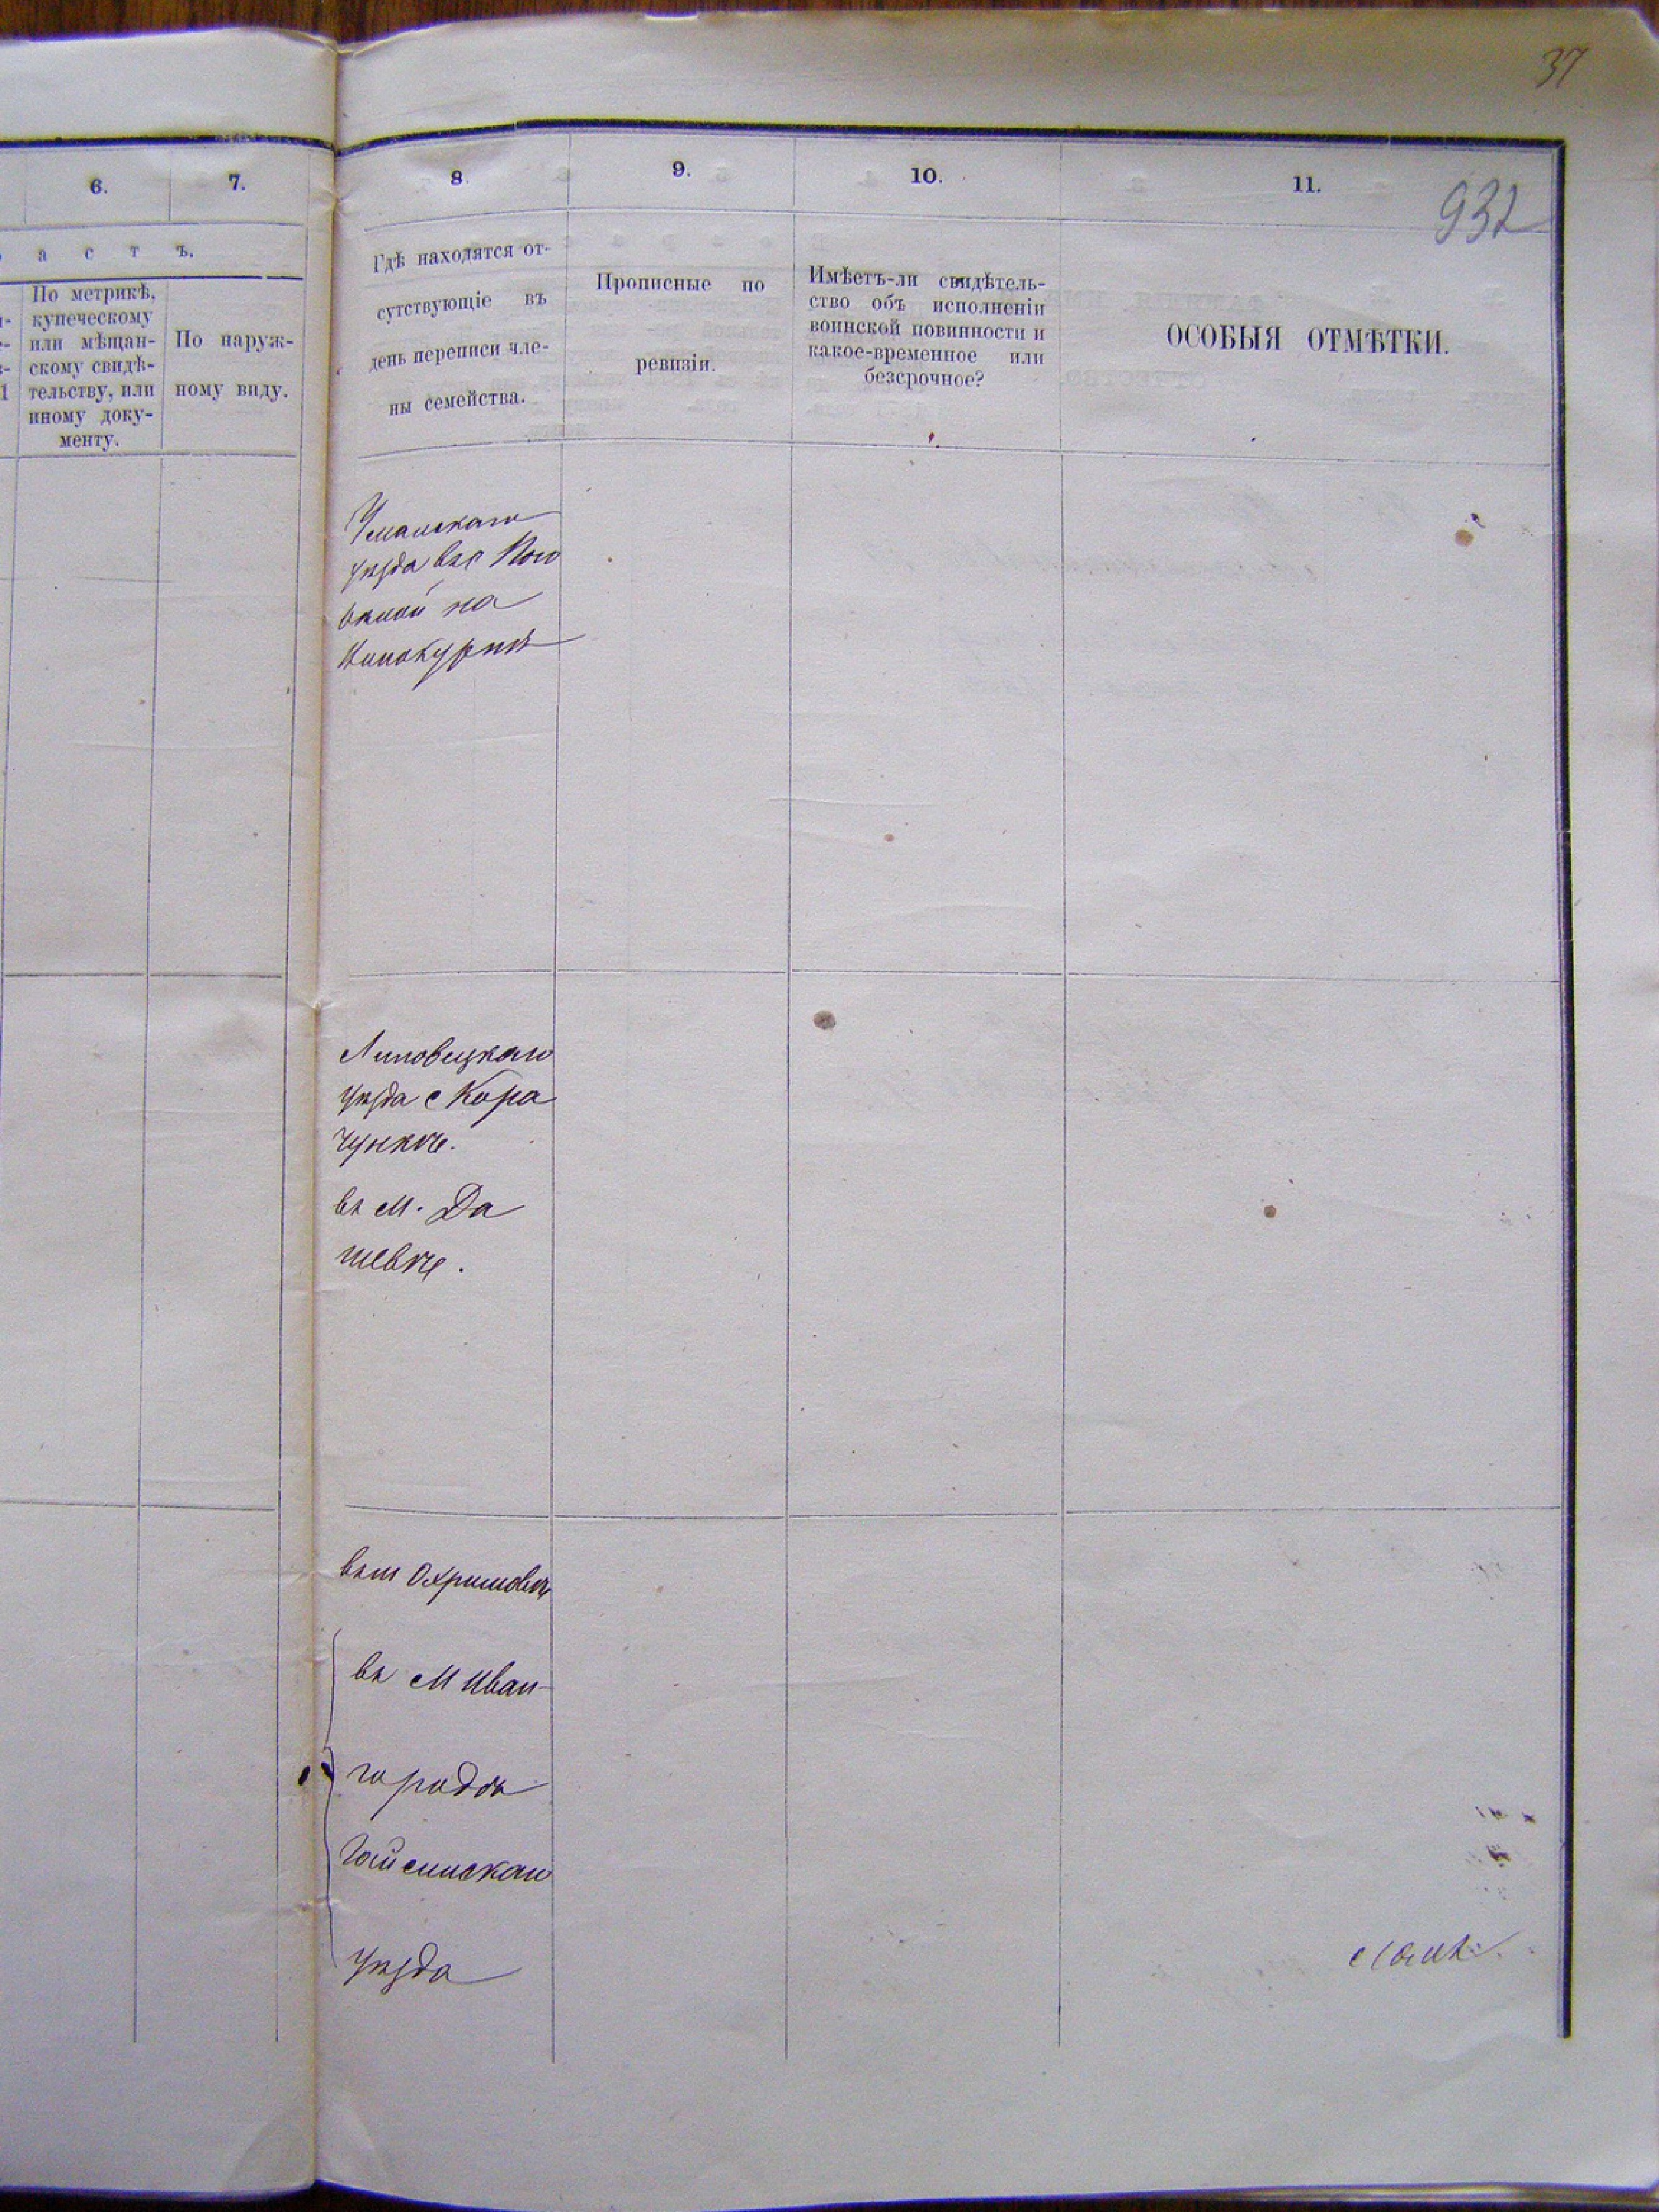 37
6.
7.
8
9.
10.
11.
932
а с т ъ.
По метрикѣ,
купеческому
или мѣщан-
скому свидѣ-
тельству, или
иному доку-
менту.
По наруж-
ному виду.
Гдѣ находятся от-
сутствующіе въ
день переписи чле-
ны семейства.
Прописные по
ревизіи.
Имѣетъ-ли свидѣтель-
ство объ исполненіи
воинской повинности и
какое-временное или
безсрочное?
ОСОБЫЯ ОТМѢТКИ.
Уманскаго
уѣзда въ с
на
Винокурнѣ
Липовецкаго
уѣзда с Кора
чункѣ.
въ М. Да
шевѣ.
въ Охримовѣ
въ М Иван-
городѣ
Гайсинскаго
уѣзда